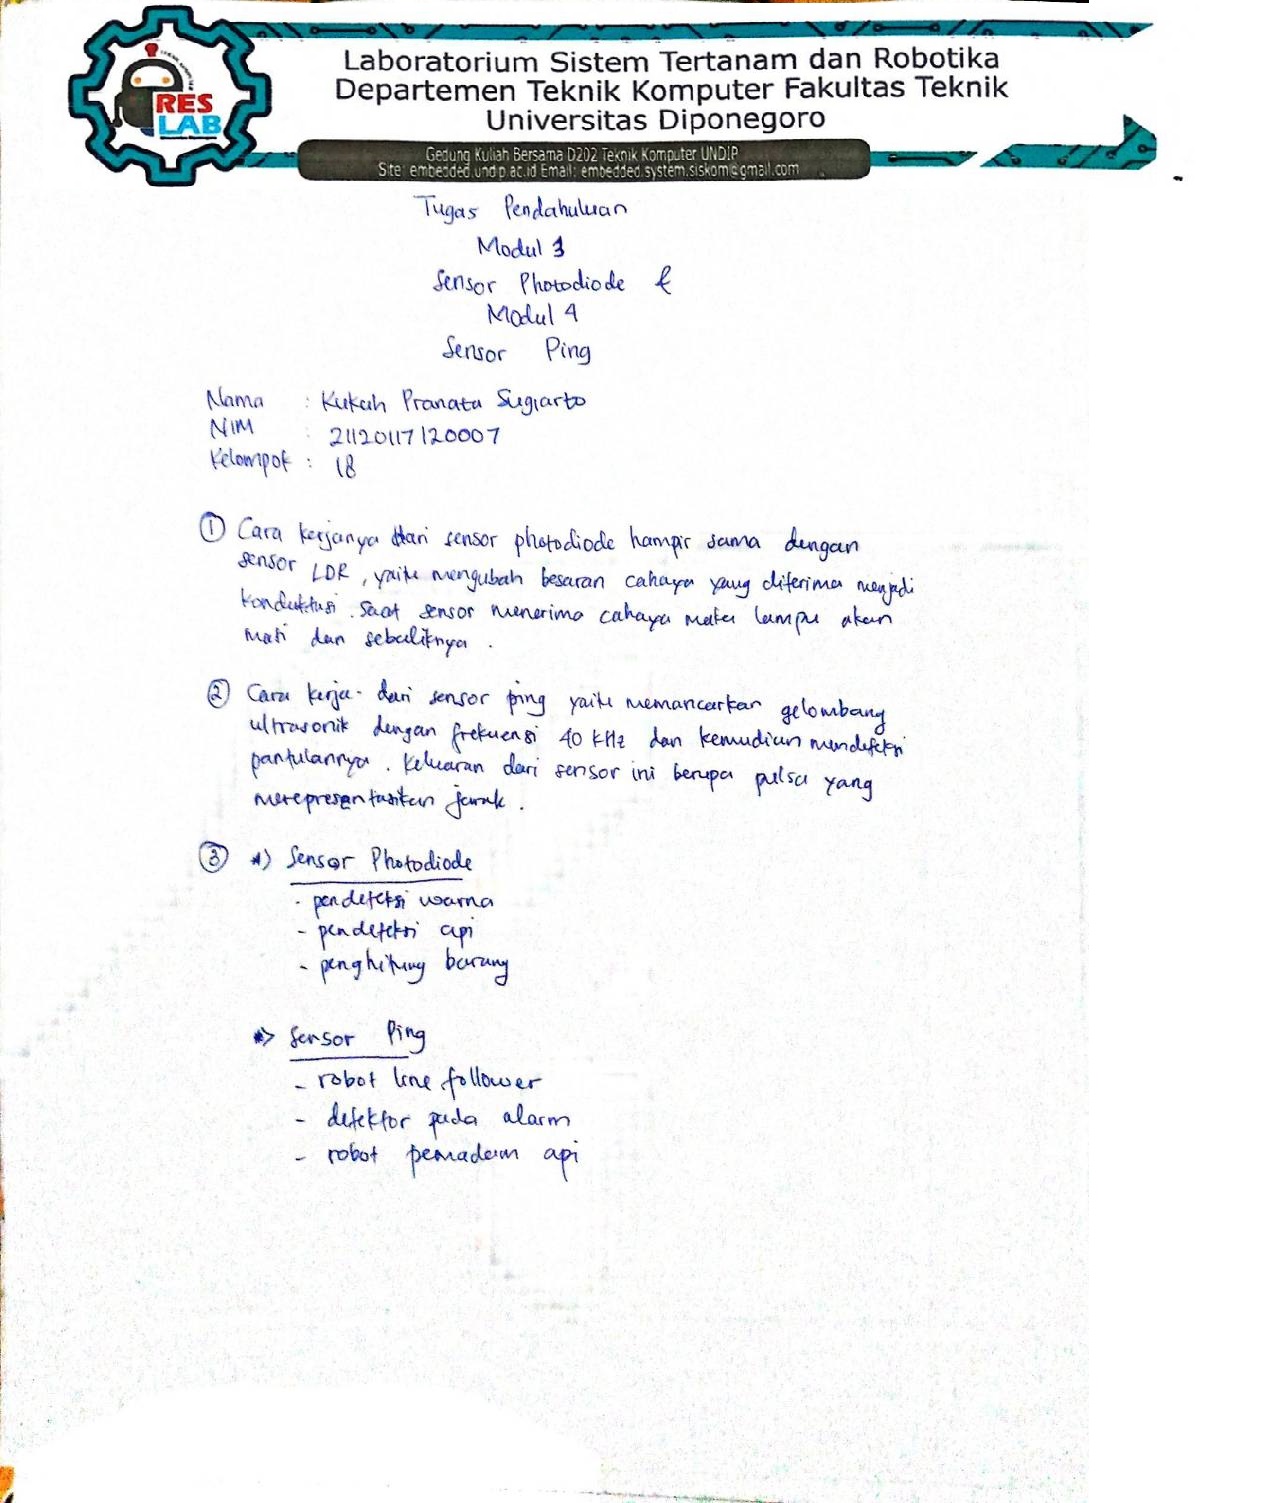 RES
LAB
Laboratorium Sistem Tertanam dan Robotika
Departemen Teknik Komputer Fakultas Teknik
Universitas Diponegoro
Gedung Kuliah Bersama D202 Teknik Komputer UNDIP
Site: embedded.undip.ac.id Email: embedded.system.siskom@gmail.com
Tugas Pendahuluan
Modul 3
Sensor Photodiode &
Modul 4
Sensor Ping
Nama : Kukuh Pranata Sugiarto
NIM : 21120117120007
Kelompok : 18
① Cara kerjanya dari sensor photodiode hampir sama dengan
sensor LDR, yaitu mengubah besaran cahaya yang diterima menjadi
konduktusi. Saat sensor menerima cahaya maka lampu akan
mati dan sebaliknya.
② Cara kerja dari sensor ping yaitu memancarkan gelombang
ultrasonik dengan frekuensi 40 kHz dan kemudian mendeteksi
pantulannya. Keluaran dari sensor ini berupa pulsa yang
merepresentasikan jarak.
③ *) Sensor Photodiode
- pendeteksi warna
- pendeteksi api
- penghitung barang
*> Sensor Ping
- robot line follower
- detektor pada alarm
- robot pemadam api